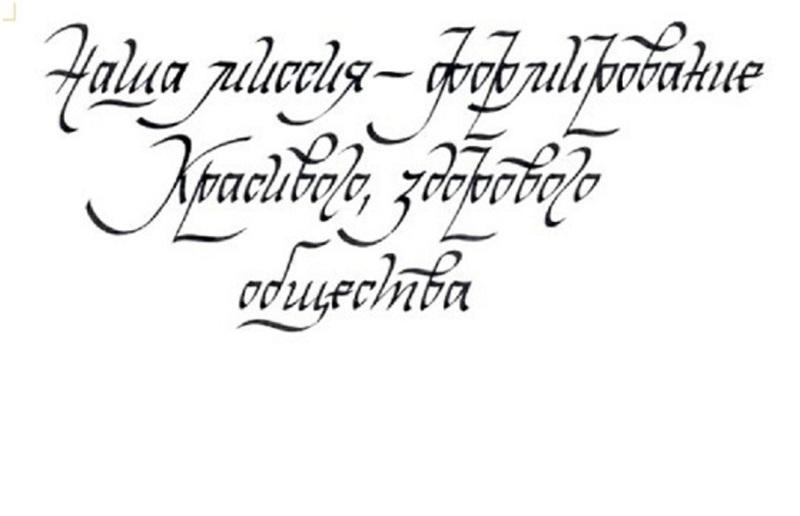 Наша миссия – формирование
Красивого, здорового
общества